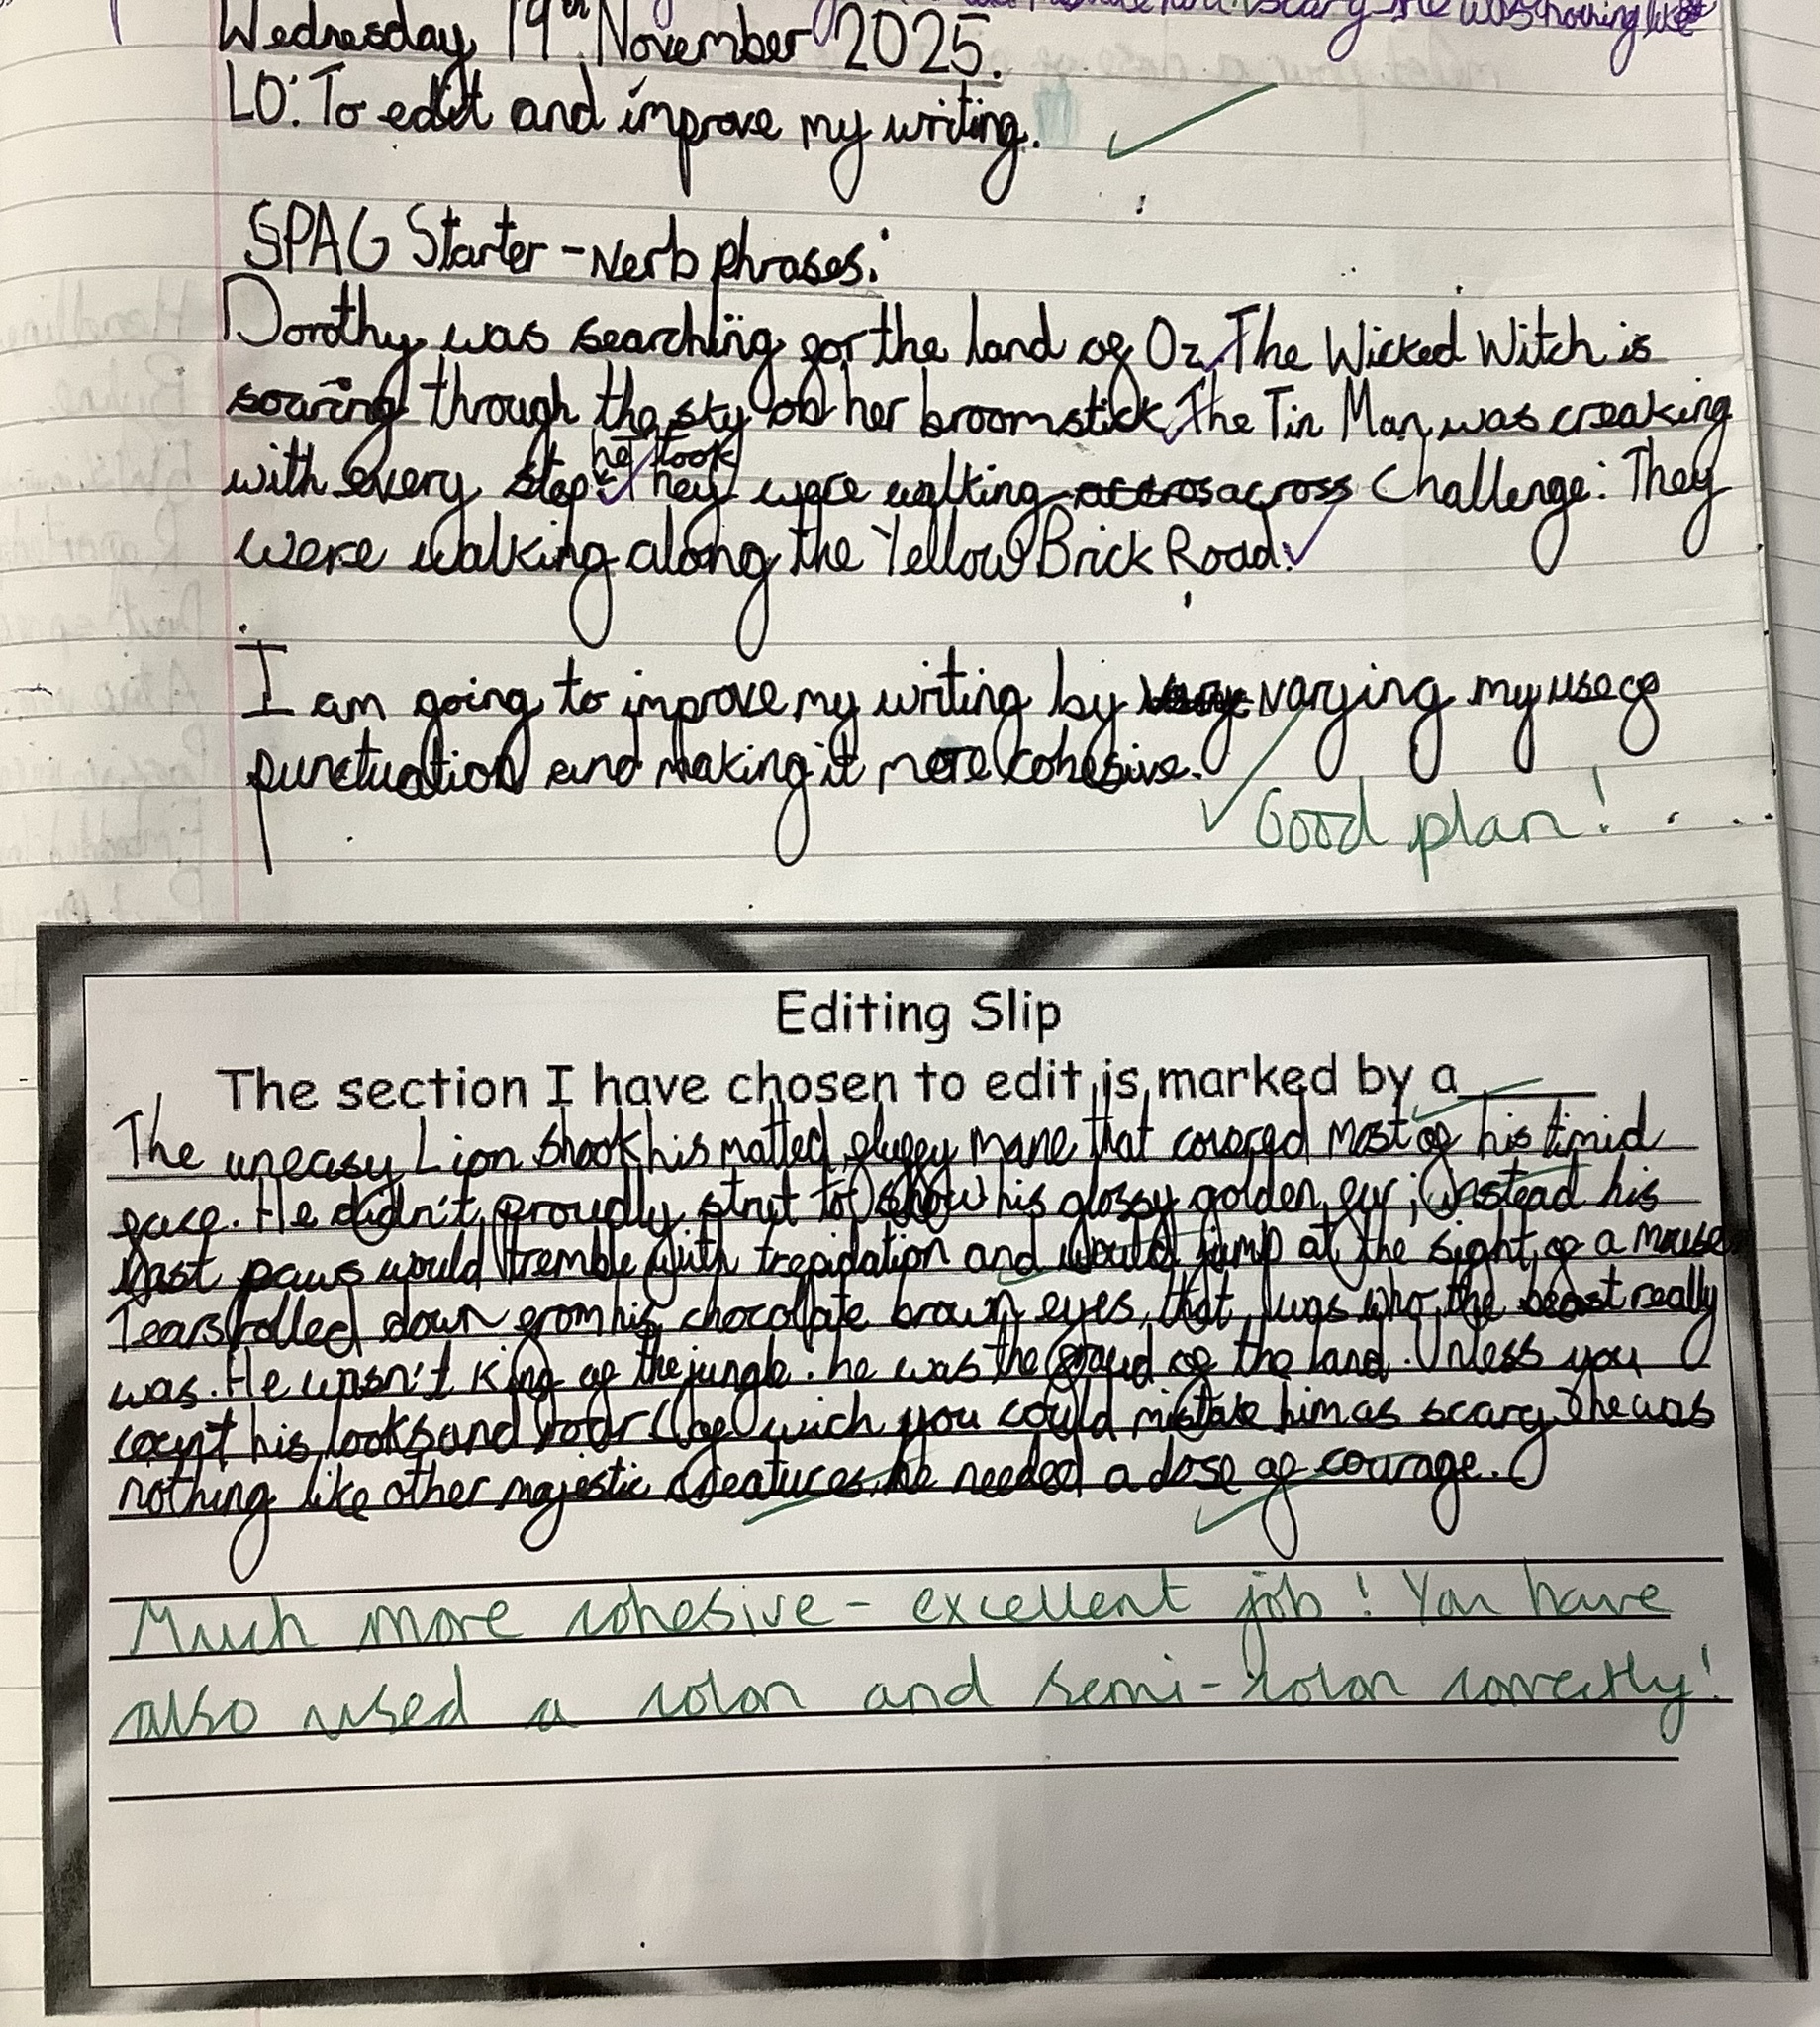 was nothing like
Wednesday 19th November 2025.
LO: To edit and improve my writing.
SPAG Starter - Verb phrases:
Dorothy was searching for the land of Oz. The Wicked Witch is
soaring through the sky on her broomstick. The Tin Man was creaking
he took
with every step. They were walking accros across Challenge: They
were walking along the Yellow Brick Road.
I am going to improve my writing by varying my use of
punctuation and making it more cohesive.
Good plan!
Editing Slip
The section I have chosen to edit is marked by a
The uneasy Lion shook his matted, fluffy mane that covered most of his timid
face. He didn't proudly strut to show his glossy golden fur; instead his
vast paws would tremble with trepidation and would jump at the sight of a mouse.
Tears rolled down from his chocolate brown eyes, that was who the beast really
was. He wasn't king of the jungle: he was the of the land. Unless you
count his looks and roar (of wich you could mistake him as scary) he was
nothing like other majestic creatures, he needed a dose of courage.
Much more cohesive - excellent job! You have
also used a colon and semi-colon correctly!